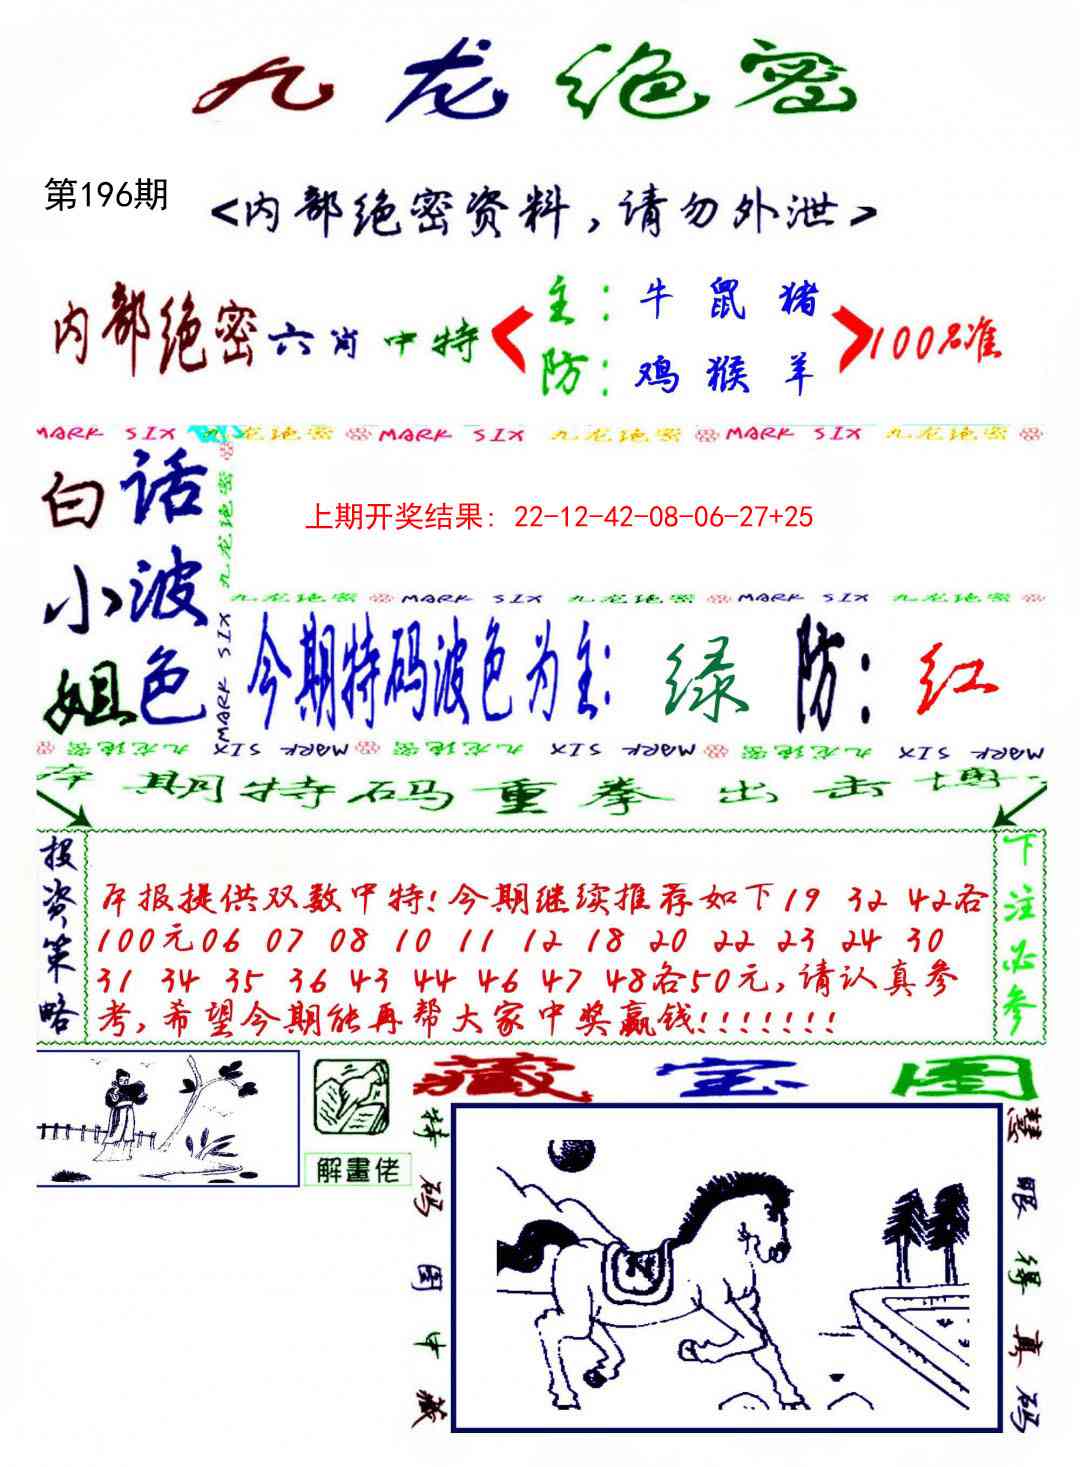 九龙绝密
第196期
<内部绝密资料,请勿外泄>
内部绝密六肖中特
主:牛 鼠 猪
防:鸡 猴 羊
100%准
MARK SIX 九龙绝密 MARK SIX 九龙绝密 MARK SIX 九龙绝密
白小姐
话波色
九龙绝密 MARK SIX
上期开奖结果:22-12-42-08-06-27+25
九龙绝密 MARK SIX 九龙绝密 MARK SIX 九龙绝密
今期特码波色为主:绿 防:红
九龙绝密 MARK SIX 九龙绝密 MARK SIX 九龙绝密 MARK SIX
本期特码重拳出击博
投资策略
本报提供双数中特!今期继续推荐如下19 32 42各
100元06 07 08 10 11 12 18 20 22 23 24 30
31 34 35 36 43 44 46 47 48各50元,请认真参
考,希望今期能再帮大家中奖赢钱!!!!!!!
下注必参
解畫佬
藏宝图
特码图中藏
慧眼得真码